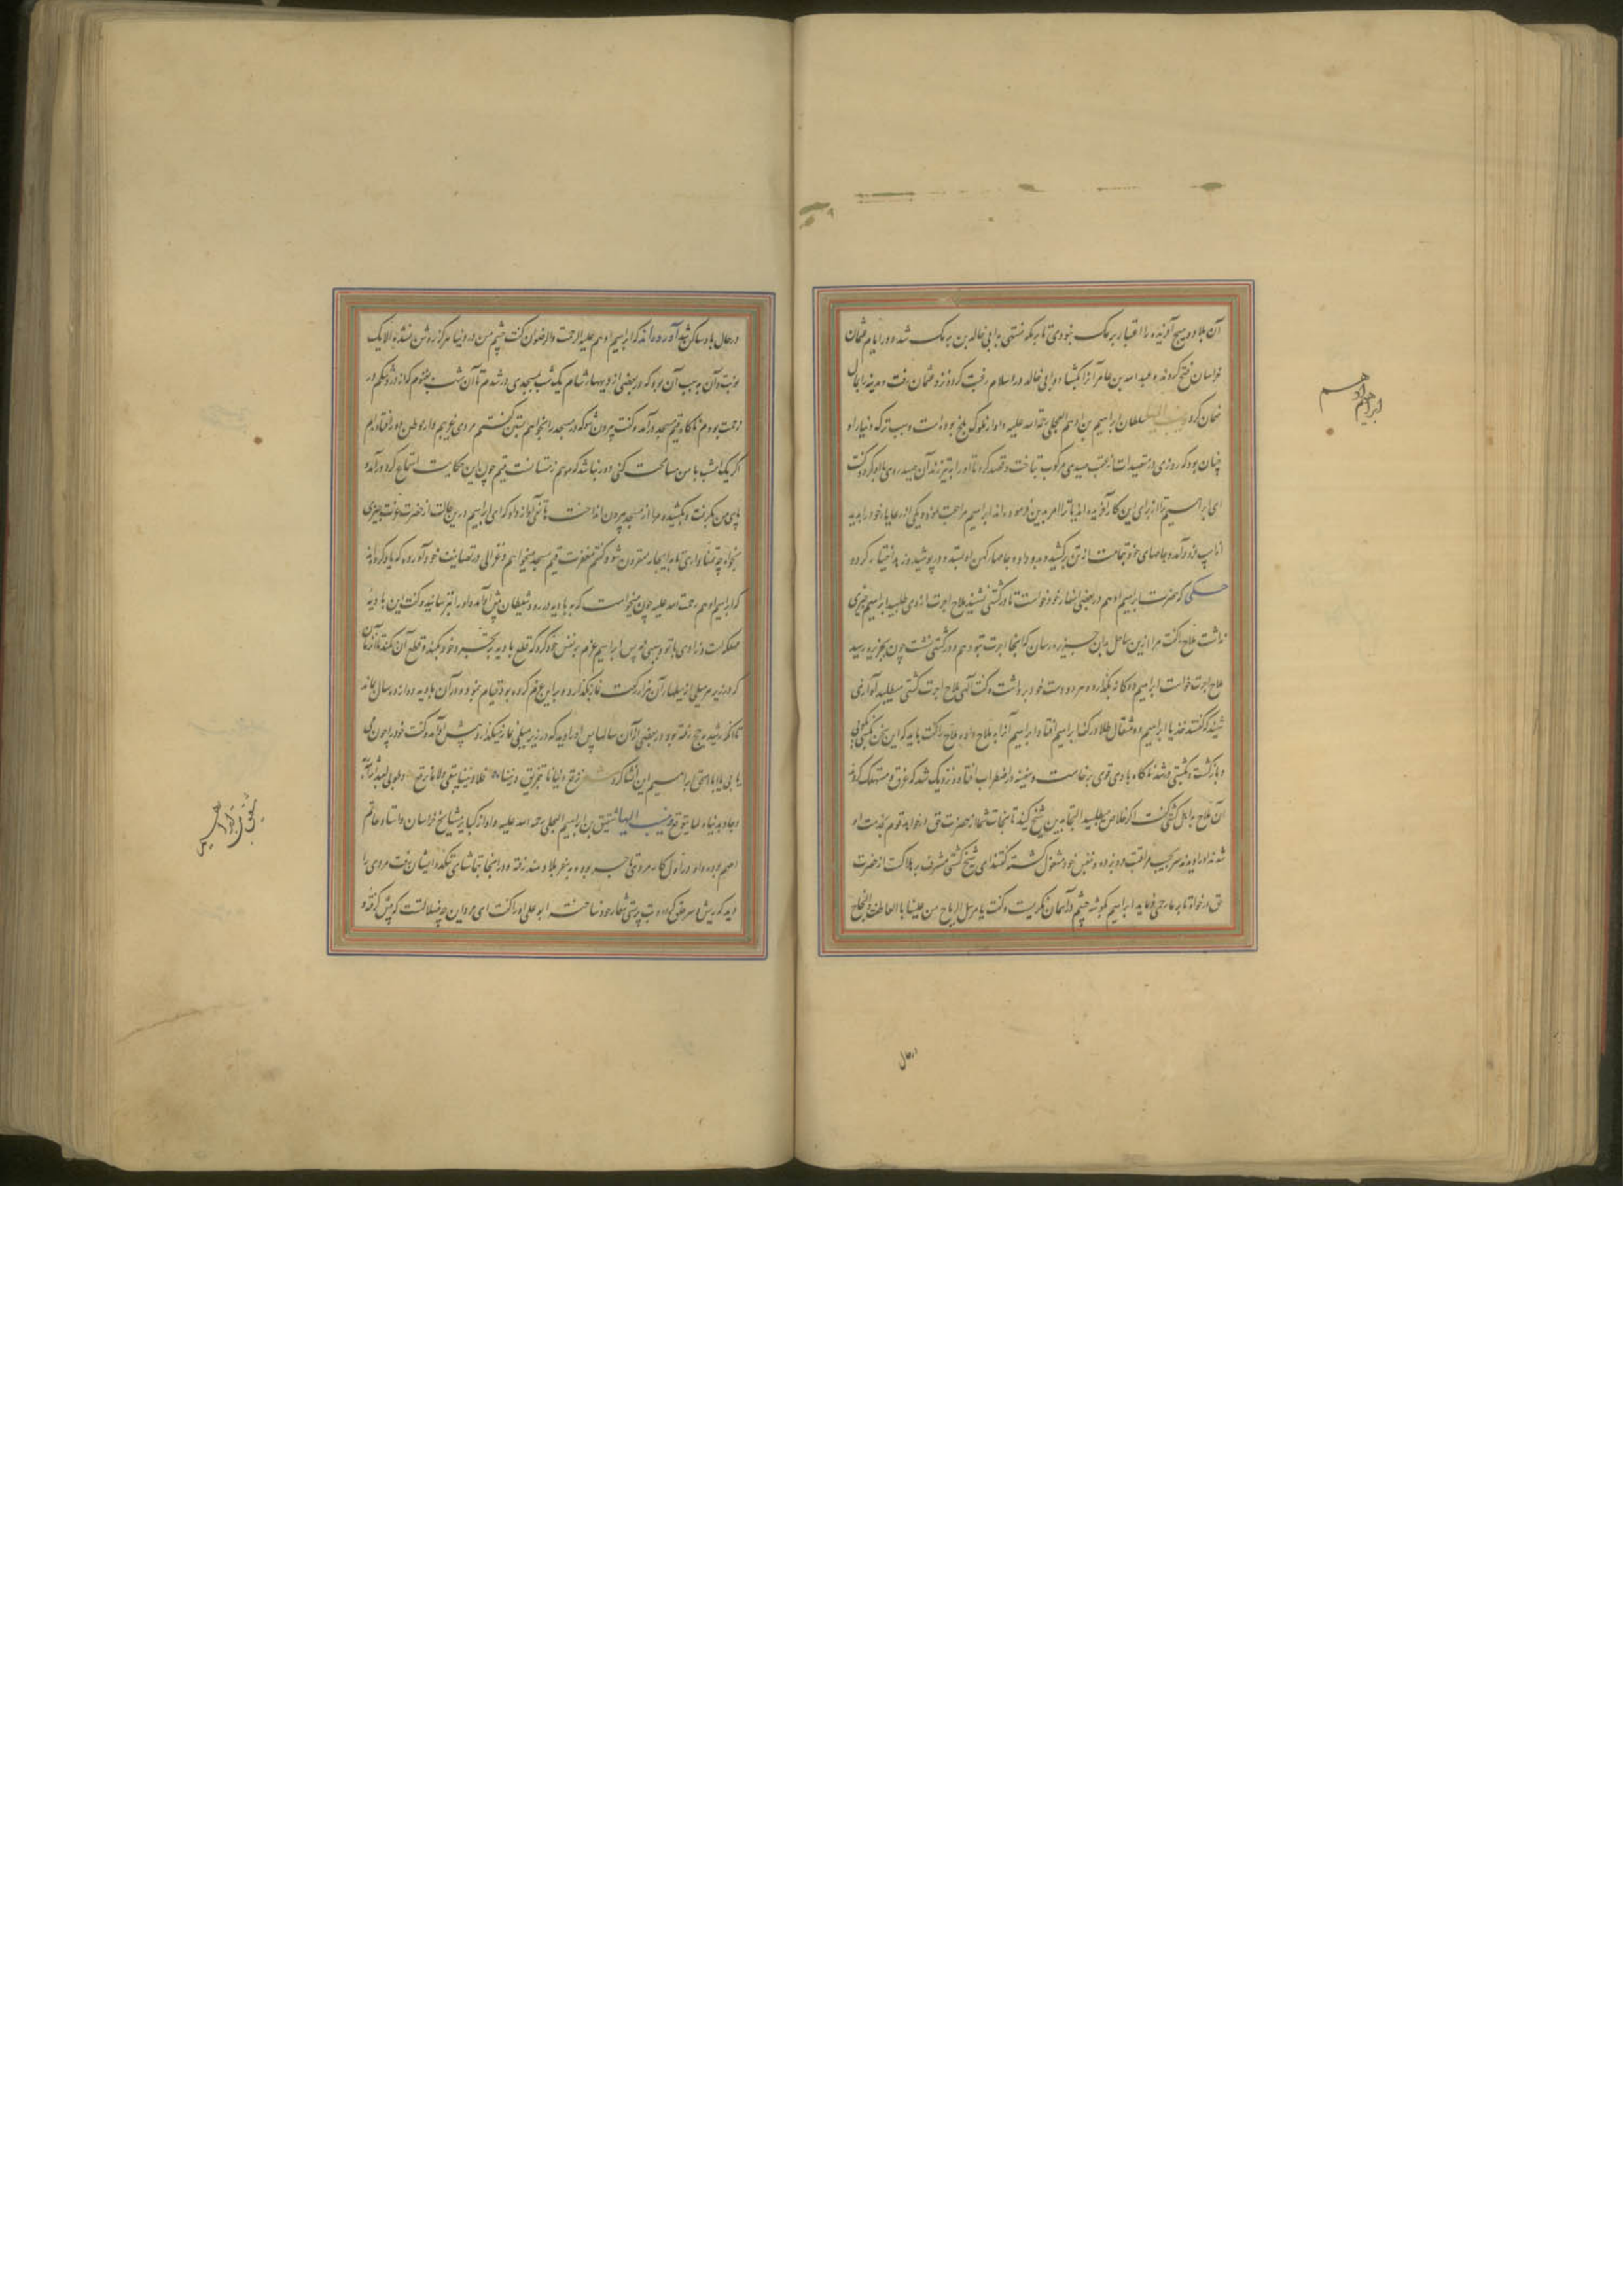 آن بلاد و هیچ آفریده را اعتبار برمک نبودی تا برمکه منتهی بابی خالد بن برمک شد و در ایام عثمان
خراسان فتح کردند و عبد الله بن عامر آنرا بگشاد و ابی خالد در اسلام رغبت کرده نزد عثمان رفت و مدینه را
ضمان کرد سلطان ابراهیم بن ادهم العجلی رحمة الله علیه و او از ملوک بلخ بوده است و سبب ترک دنیا او
چنان بود که روزی در متصیدات از عقب صیدی مرکوب بتاخت و قصد کرد تا او را بتیر زند آن صید روی باو کرد و گفت
ای ابراهیم ترا از برای این کار آفریده اند یا ترا امر بدین فرموده اند ابراهیم مراجعت نمود و یکی از رعایا خود را بدید
از اسپ فرود آمد و جامهای خود بتمامت از تن برکشید و بدو داد و جامهاء کهن او بستد و در پوشید و زهد اختیار کرد
حکی که حضرت ابراهیم ادهم در بعضی اسفار خود خواست تا در کشتی نشیند ملاح اجرت از وی طلبید ابراهیم چیزی
نداشت ملاح را گفت مرا ازین ساحل بآن جزیره رسان که آنجا اجرت بتو دهم و در کشتی نشست چون بجزیره رسید
ملاح اجرت خواست ابراهیم دو کانه بگذارد و هر دو دست خود برداشت و گفت الهی ملاح اجرت کشتی میطلبد آوازی
شنید که گفتند خذ یا ابراهیم و ده مثقال طلا در کف ابراهیم افتاد و ابراهیم آنرا به ملاح داد و ملاح را گفت باید که این سخن بکس نگویی
و بازگشت و بکشتی در شد ناگاه بادی قوی برخاست و سفینه در اضطراب افتاد و نزدیک شد که غرق و مستهلک گردند
آن ملاح با اهل کشتی گفت اگر خلاص میطلبید التجا بدین شیخ کنید تا نجات شما از حضرت حق او خواهد قوم بخدمت او
شدند او را دیدند سر بجیب مراقبت فرو برده و بنفس خود مشغول گشته گفتند ای شیخ کشتی مشرف بر هلاکت از حضرت
حق درخواه تا بر ما رحمی فرماید ابراهیم بگوشه چشم در آسمان نگریست و گفت یا مرسل الریاح من علینا بالعاطفة و النجاح
ابراهیم ادهم
در حال
در حال باد ساکن شد آورده اند که ابراهیم ادهم علیه الرحمة و الرضوان گفت چشم من در دنیا هرگز روشن نشده الا یک
نوبت و آن به سبب آن بود که در بعضی از دیهاء شام یک شب بمسجدی در شدم تا آن شب بغنوم که از درد شکم در
زحمت بودم ناگاه قیم مسجد درآمد و گفت بیرون شو که در مسجد را بخواهم بستن گفتم مردی غریبم و از وطن دور افتاده ام
اگر یک امشب با من مسامحت کنی دور نباشد که موسم زمستانست قیم چون این حکایت استماع کرد درآمد و
پای من بگرفت و بکشید و مرا از مسجد بیرون انداخت هاتفی آواز داد که ای ابراهیم درین حالت از حضرت عزت چیزی
بخواه چه تمنا داری تا به ایجاز مقرون شود گفتم مغفرت قیم مسجد میخواهم و غزالی در تصانیف خود آورده که یاد کرده اند
که ابراهیم ادهم رحمت الله علیه چون میخواست که به بادیه در رود شیطان پیش او آمد و او را بترسانید و گفت این بادیه
مهلکه است و زادی با تو و سببی نه پس ابراهیم عزم بر نفس خود کرد که قطع بادیه بر تجرد خود بکند و قطع آن نکند تا آن زمان
که در زیر هر میلی از میلهاء آن هزار رکعت نماز بگذارد و بر این عزم کرده بود قیام نمود و در آن بادیه دوازده سال بماند
تا آنکه رشید بحج رفته بود در بعضی از آن سالها پس او را دید که در زیر میلی نماز میگذارد پیش آمد و گفت خود را چون می
یابی یا ابا اسحق ابراهیم این انشا کرد شعر نرقع دنیانا بتمزیق دیننا فلا دیننا یبقی ولا ما نرقع و طوبی لعبد آثر الله
و جاد بدنیاه لما یتوقع شقیق بن ابراهیم البلخی رحمة الله علیه و او از کبار مشایخ خراسان و استاد حاتم
اصم بوده و او در اول کار مردی تاجر بوده و بسفر بلاد هند رفته و در آنجا بتماشای بتکده ایشان رفت مردی را
دید که ریش و سر حلق کرده و بت پرستی شعار خود ساخته ابو علی او را گفت ای مرد این چه ضلالتست که پیش گرفته و
شقیق بن ابراهیم